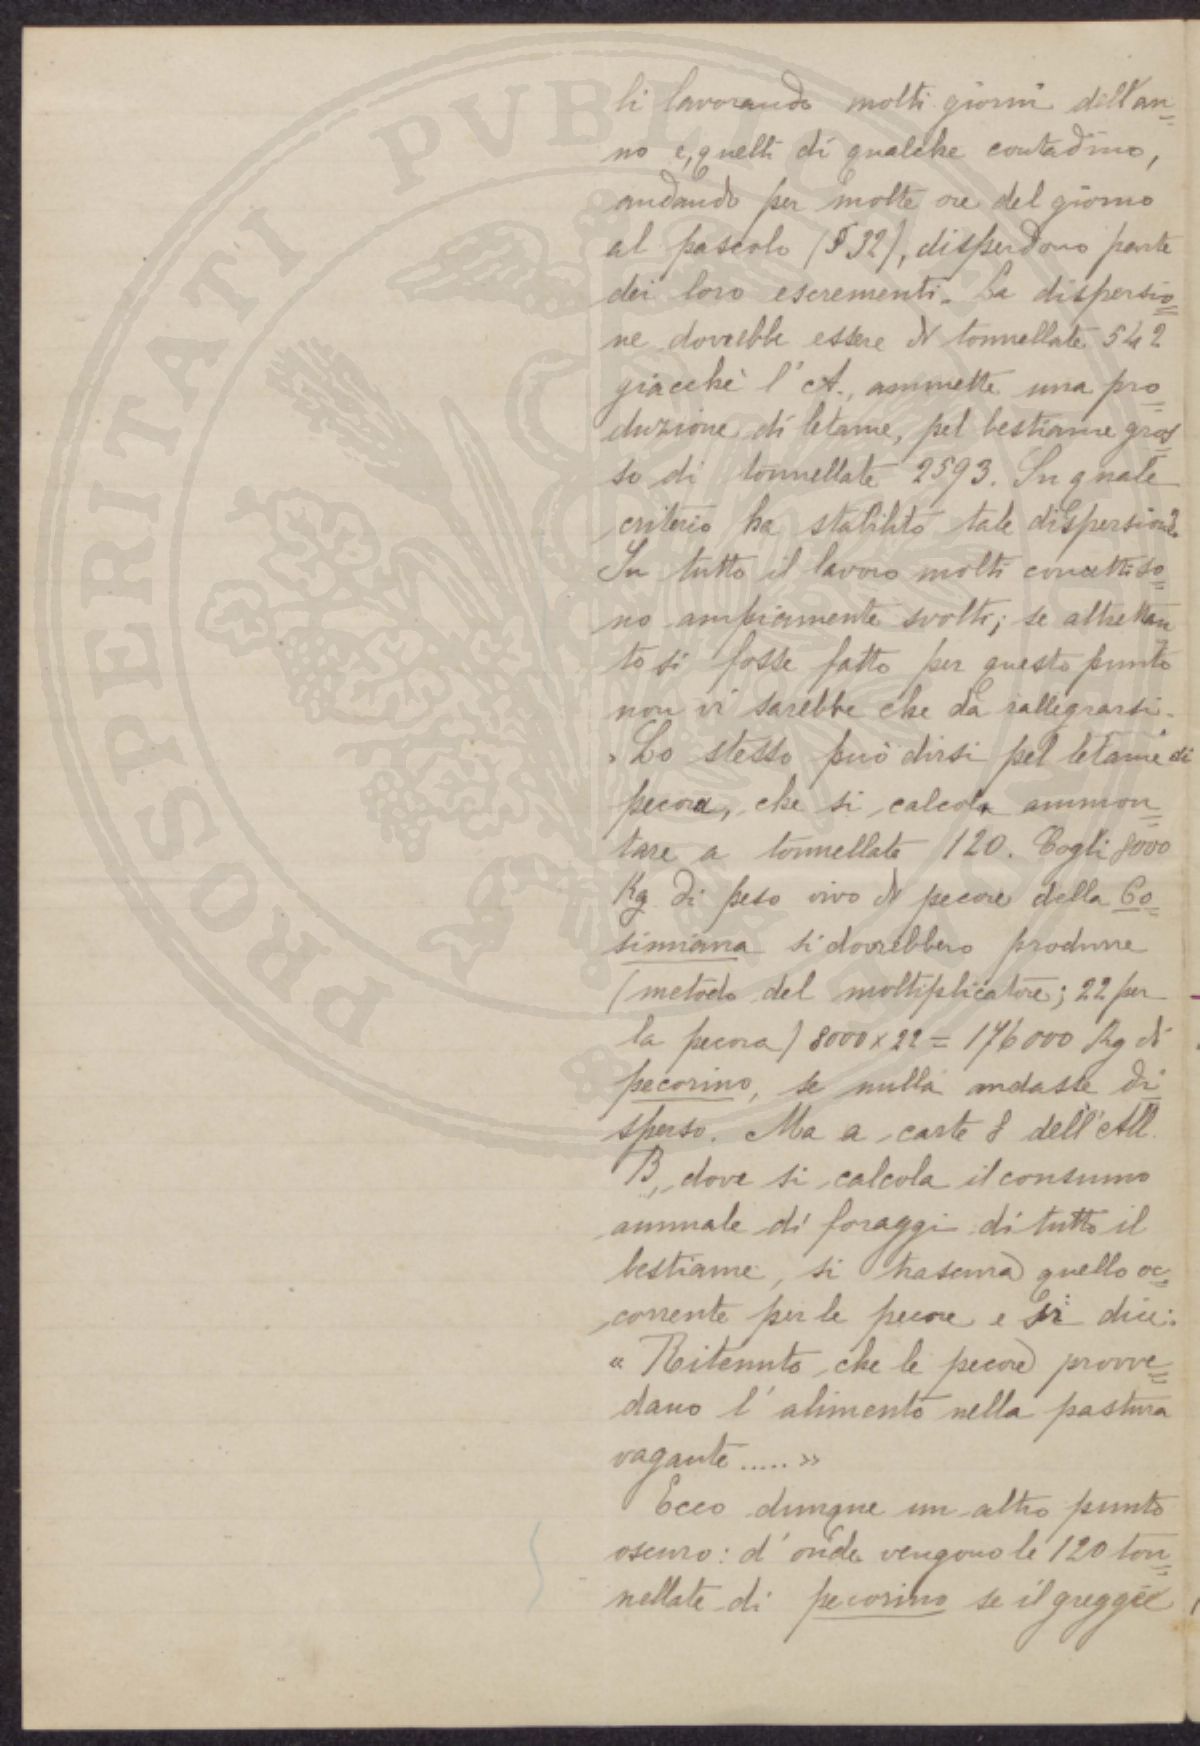 li lavorando molti giorni dell'an=
no e, quelli di qualche contadino,
andando per molte ore del giorno
al pascolo (§ 32), disperdono parte
dei loro escrementi. La dispersio=
ne dovrebbe essere di tonnellate 542
giacchè l'A., ammette una pro=
duzione di letame, pel bestiame gros=
so di tonnellate 2593. Su quale
criterio ha stabilito tale dispersione?
In tutto il lavoro molti concetti so=
no ampiamente svolti; se altrettan=
to si fosse fatto per questo punto
non vi sarebbe che da rallegrarsi.
Lo stesso può dirsi pel letame di
pecora, che si calcola ammon=
tare a tonnellate 120. Cogli 8000
Kg di peso vivo di pecore della Co=
simiana si dovrebbero produrre
(metodo del moltiplicatore; 22 per
la pecora) 8000 x 22 = 176000 Kg di
pecorino, se nulla andasse di
sperso. Ma a carte 8 dell'All.
B, dove si calcola il consumo
annuale di foraggi di tutto il
bestiame, si trascura quello oc=
corrente per le pecore e si dice:
« Ritenuto che le pecore provve=
dano l'alimento nella pastura
vagante ..... »
Ecco dunque un altro punto
oscuro: d'onde vengono le 120 ton=
nellate di pecorino se il gregge
PROSPERITATI PVBLICAE